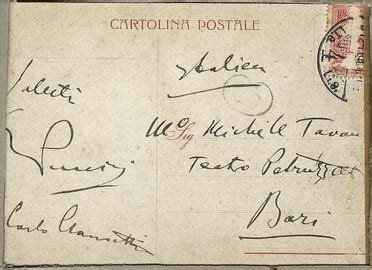 CARTOLINA POSTALE
Italien
Saluti
Puccini
Carlo Clausetti
Mo Sig Michele
Teatro Petruzzelli
Bari